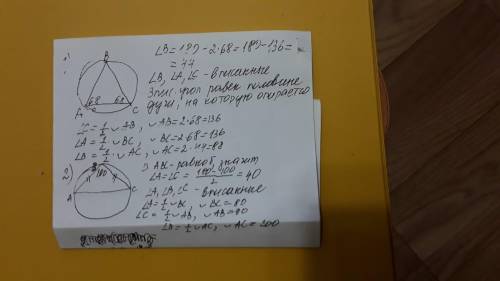 1)
∠B=180-2·68=180-136=
=44
B
68 68
A C
∠B, ∠A, ∠C - вписанные
Впис. угол равен половине
дуги, на которую опирается
∠C=1/2 ◡AB, ◡AB=2·68=136
∠A=1/2 ◡BC, ◡BC=2·68=136
∠B=1/2 ◡AC, ◡AC=2·44=88
2)
B
100
A C
ABC - равноб, значит
∠A=∠C=(180-100)/2=40
∠A, ∠B, ∠C - вписанные
∠A=1/2 ◡BC, ◡BC=80
∠C=1/2 ◡AB, ◡AB=80
∠B=1/2 ◡AC, ◡AC=200